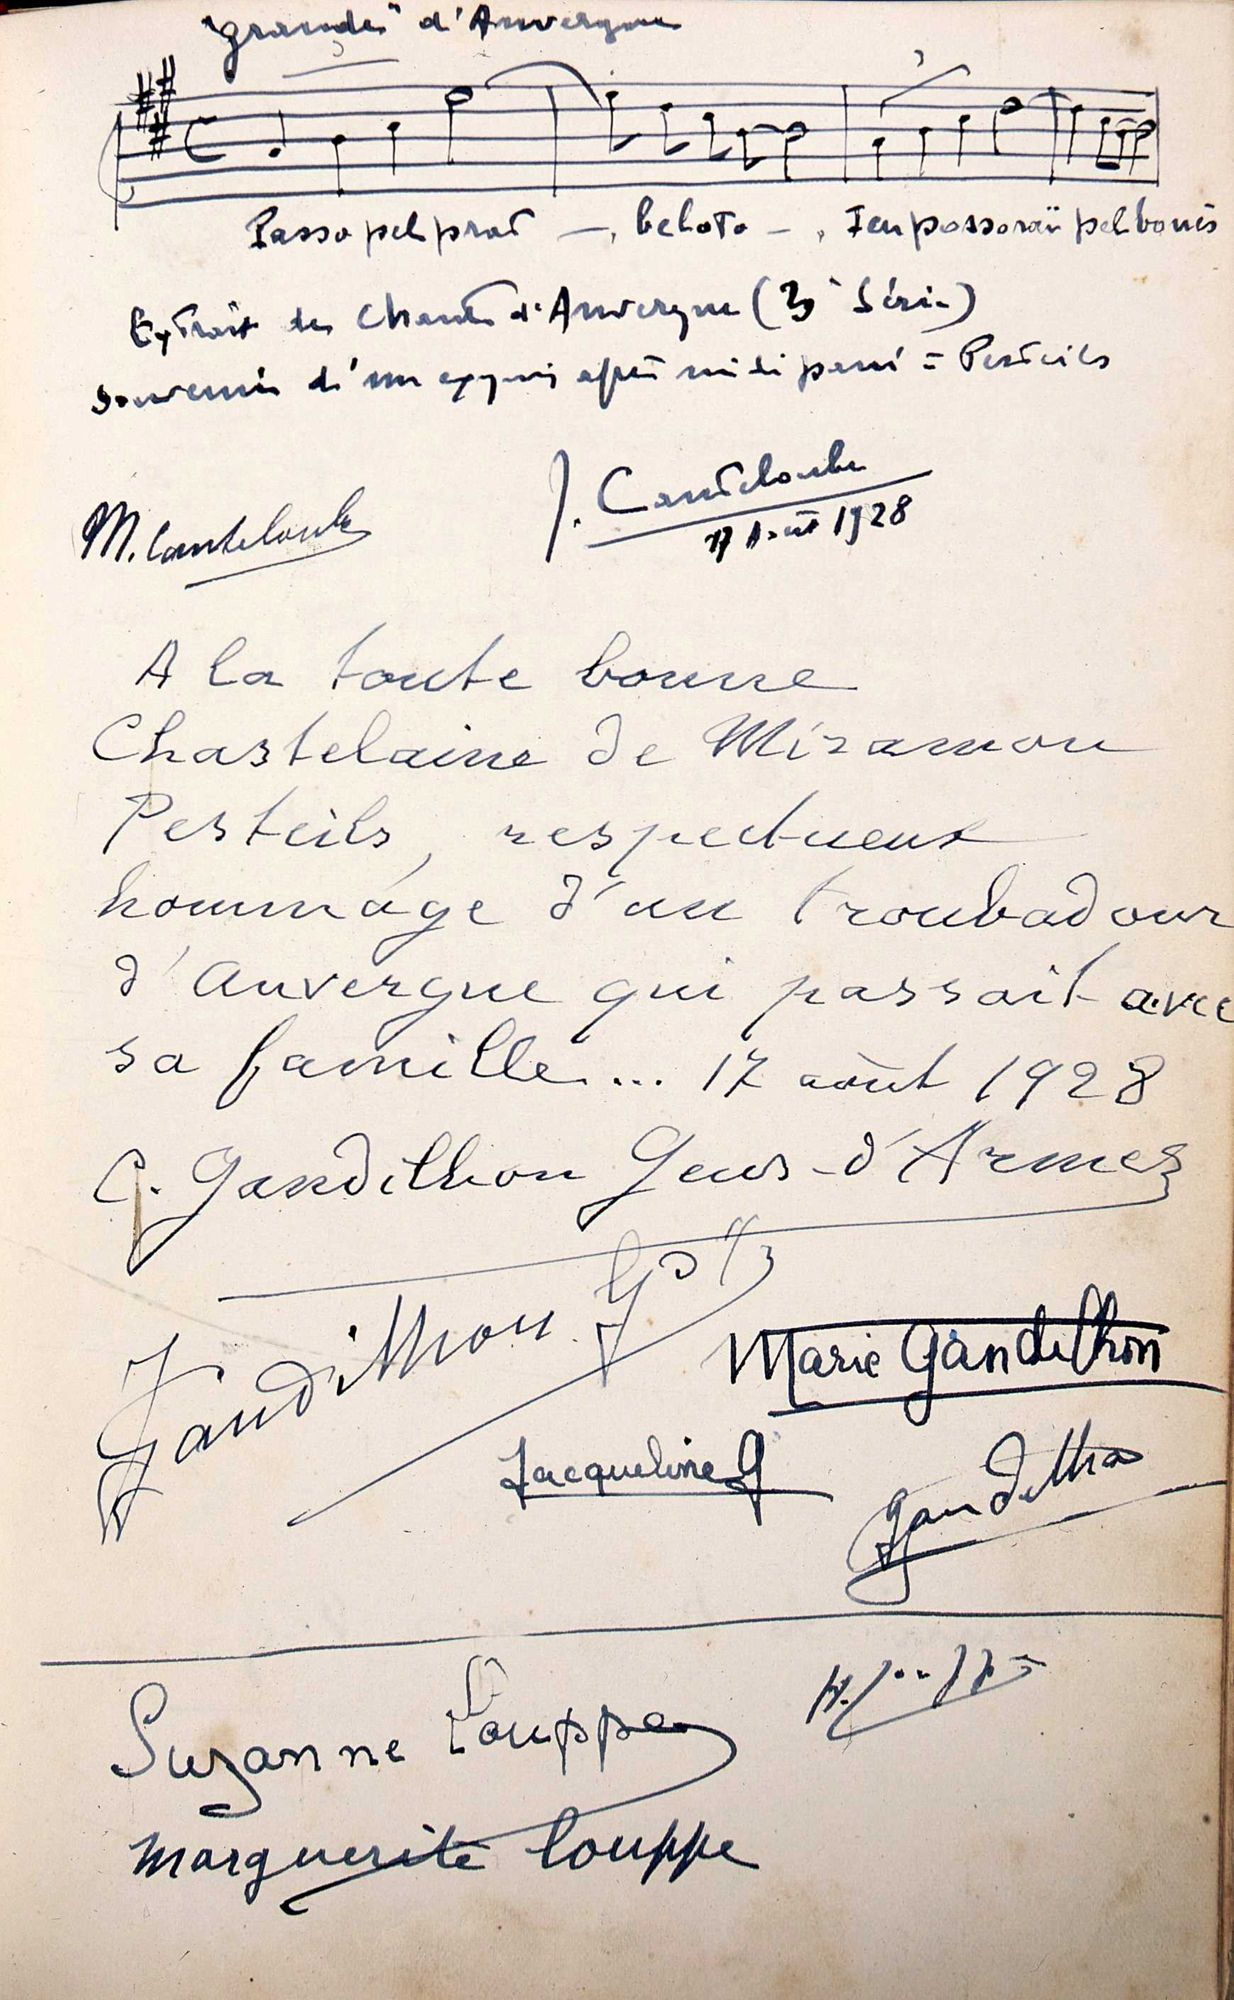 "grande" d'Auvergne
Passo pel prat —, beloto —, Ieu possoraï pel bouès
Extrait des Chants d'Auvergne (3e Série)
Souvenir d'un exquis après midi passé à Pesteils
J. Canteloube
17 Août 1928
M. Canteloube
A la toute bonne
Chastelaine de Miramon
Pesteils, respectueux
hommage d'un troubadour
d'Auvergne qui passait avec
sa famille... 17 août 1928
C. Gandilhon Gens-d'Armes
Gandilhon G. d'A
Marie Gandilhon
Jacqueline G
Gandilhon
Suzanne Louppe
Marguerite Louppe